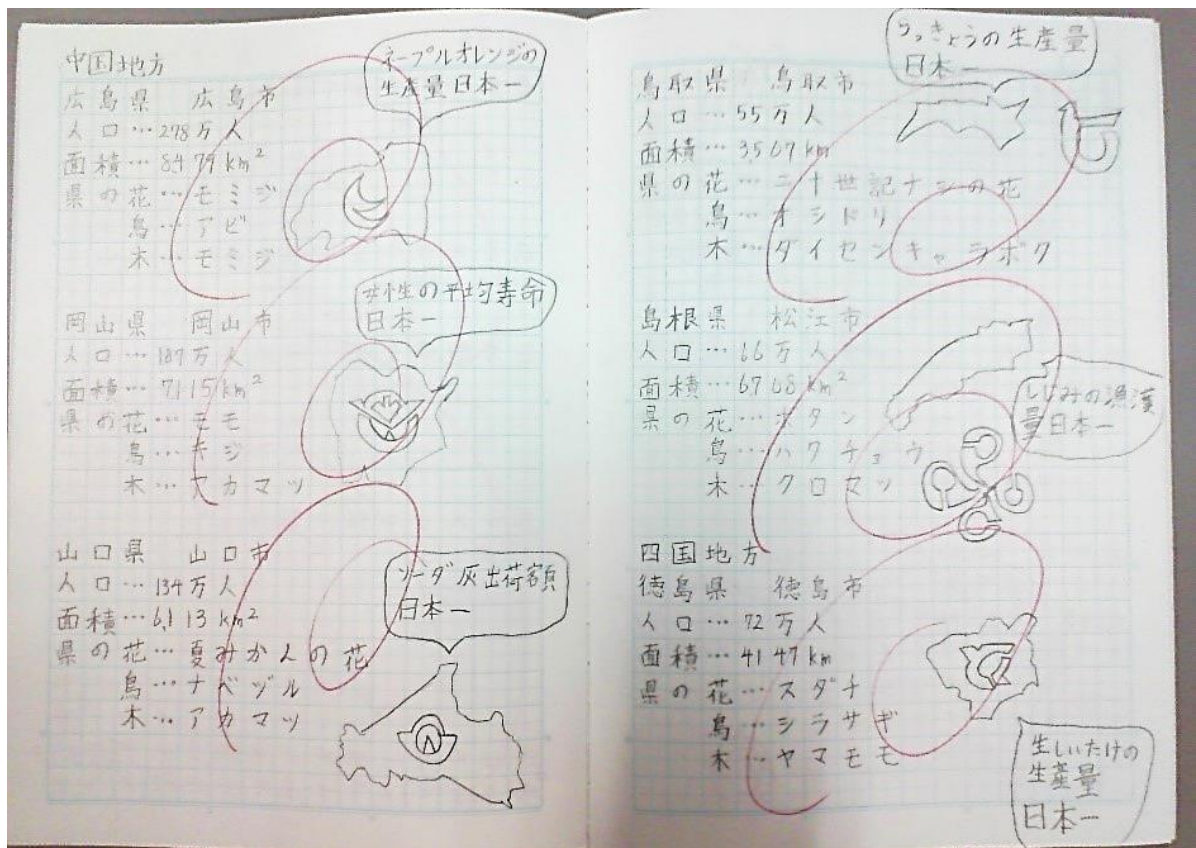 中国地方
広島県 広島市
人口…278万人
面積…8479km²
県の花…モミジ
鳥…アビ
木…モミジ
ネーブルオレンジの
生産量日本一
岡山県 岡山市
人口…187万人
面積…7115km²
県の花…モモ
鳥…キジ
木…アカマツ
女性の平均寿命
日本一
山口県 山口市
人口…134万人
面積…6,113km²
県の花…夏みかんの花
鳥…ナベヅル
木…アカマツ
ソーダ灰出荷額
日本一
鳥取県 鳥取市
人口…55万人
面積…3507km
県の花…二十世記ナシの花
鳥…オシドリ
木…ダイセンキャラボク
らっきょうの生産量
日本一
島根県 松江市
人口…66万人
面積…6768km²
県の花…ボタン
鳥…ハクチョウ
木…クロマツ
しじみの漁獲
量日本一
四国地方
徳島県 徳島市
人口…72万人
面積…4147km
県の花…スダチ
鳥…シラサギ
木…ヤマモモ
生しいたけの
生産量
日本一